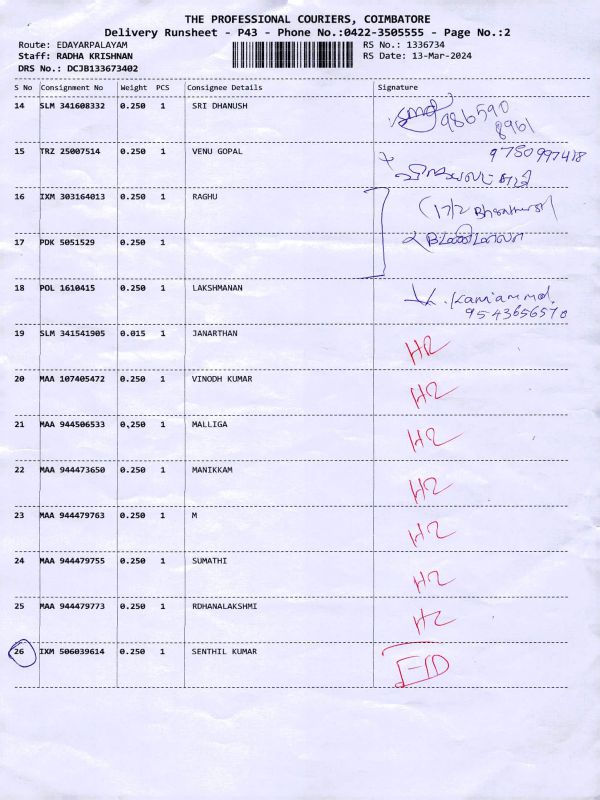 THE PROFESSIONAL COURIERS, COIMBATORE
Delivery Runsheet - P43 - Phone No.:0422-3505555 - Page No.:2
Route: EDAYARPALAYAM RS No.: 1336734
Staff: RADHA KRISHNAN RS Date: 13-Mar-2024
DRS No.: DCJB133673402
S No Consignment No Weight PCS Consignee Details Signature
14 SLM 341608332 0.250 1 SRI DHANUSH
986590
8961
15 TRZ 25007514 0.250 1 VENU GOPAL 9750997418
16 IXM 303164013 0.250 1 RAGHU
(17/2
17 PDK 5051529 0.250 1
18 POL 1610415 0.250 1 LAKSHMANAN
9543656570
19 SLM 341541905 0.015 1 JANARTHAN H2
20 MAA 107405472 0.250 1 VINODH KUMAR H2
21 MAA 944506533 0,250 1 MALLIGA H2
22 MAA 944473650 0.250 1 MANIKKAM H2
23 MAA 944479763 0.250 1 M H2
24 MAA 944479755 0.250 1 SUMATHI H2
25 MAA 944479773 0.250 1 RDHANALAKSHMI H2
26 IXM 506039614 0.250 1 SENTHIL KUMAR